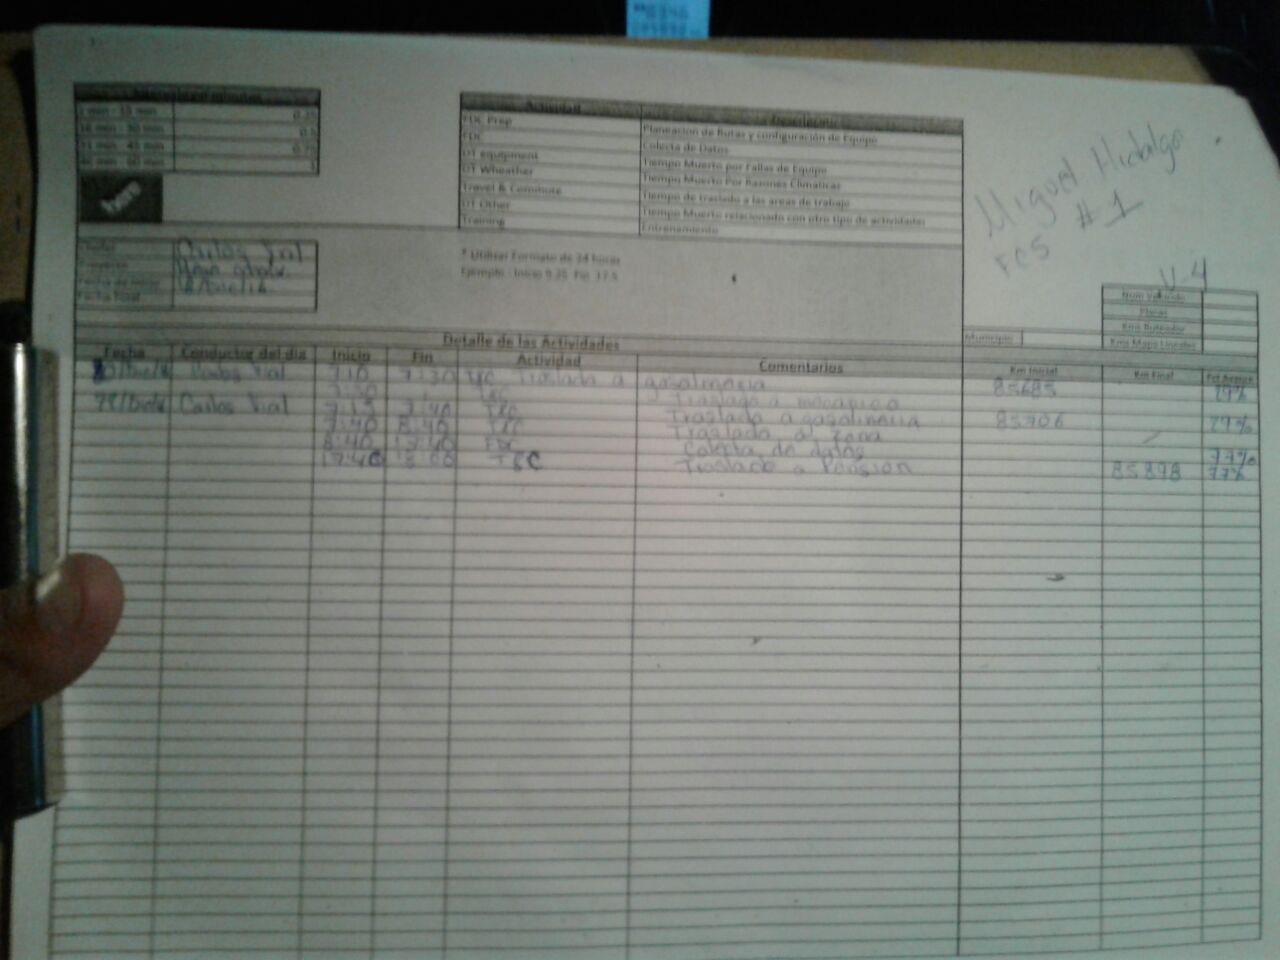 1 min - 15 min 0.25
16 min - 30 min 0.5
31 min - 45 min 0.75
46 min - 60 min 1
here
Actividad
FDC Prep Planeacion de Rutas y configuración de Equipo
FDC Colecta de Datos
DT equipment Tiempo Muerto por Fallas de Equipo
DT Wheather Tiempo Muerto Por Razones Climaticas
Travel & Commute Tiempo de traslado a las areas de trabajo
DT Other Tiempo Muerto relacionado con otro tipo de actividades
Training Entrenamiento
Miguel Hidalgo
FCS #1
V-4
Carlos
Fecha de Inicio
Fecha Final
* Utilizar Formato de 24 horas
Ejemplo : Inicio 9.25 Fin 17.5
Num Vehiculo
Placas
Kms Ruteador
Municipio Kms Mapa Lineales
Detalle de las Actividades
Fecha Conductor del dia Inicio Fin Actividad Comentarios Km Inicial Km Final
7:10 7:30 Traslado a gasolineria 85685 79%
Traslado a mecanico
Carlos 7:40 T&C Traslado a gasolineria 85706 79%
7:40 8:40 T&C Traslado a zona
8:40 17:40 FDC Colecta de datos 77%
17:40 T&C Traslado a Pension 85898 77%